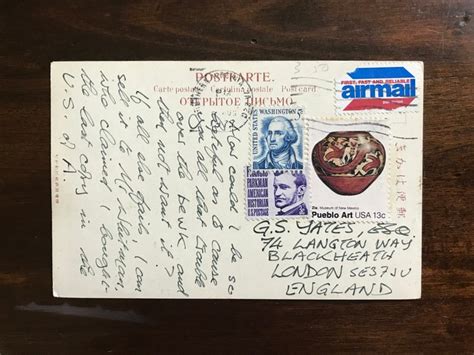 POSTKARTE.
Carte postale Cartolina postale Postcard
ОТКРЫТОЕ ПИСЬМО.
3.50
FIRST, FAST AND RELIABLE
airmail
きかは便郵
UNITED STATES
WASHINGTON
5
PARKMAN
AMERICAN
HISTORIAN
U.S. POSTAGE
Zia: Museum of New Mexico
Pueblo Art USA 13c
How could I be so
as to cause
you all that trouble
over the book and
then not want it?
If all else fails I can
sell it to Mr
who claimed I bought
the last copy in the
U.S. of A.
G.S. YATES, ESQ.
74 LANGTON WAY
BLACKHEATH
LONDON SE3 7JU
ENGLAND